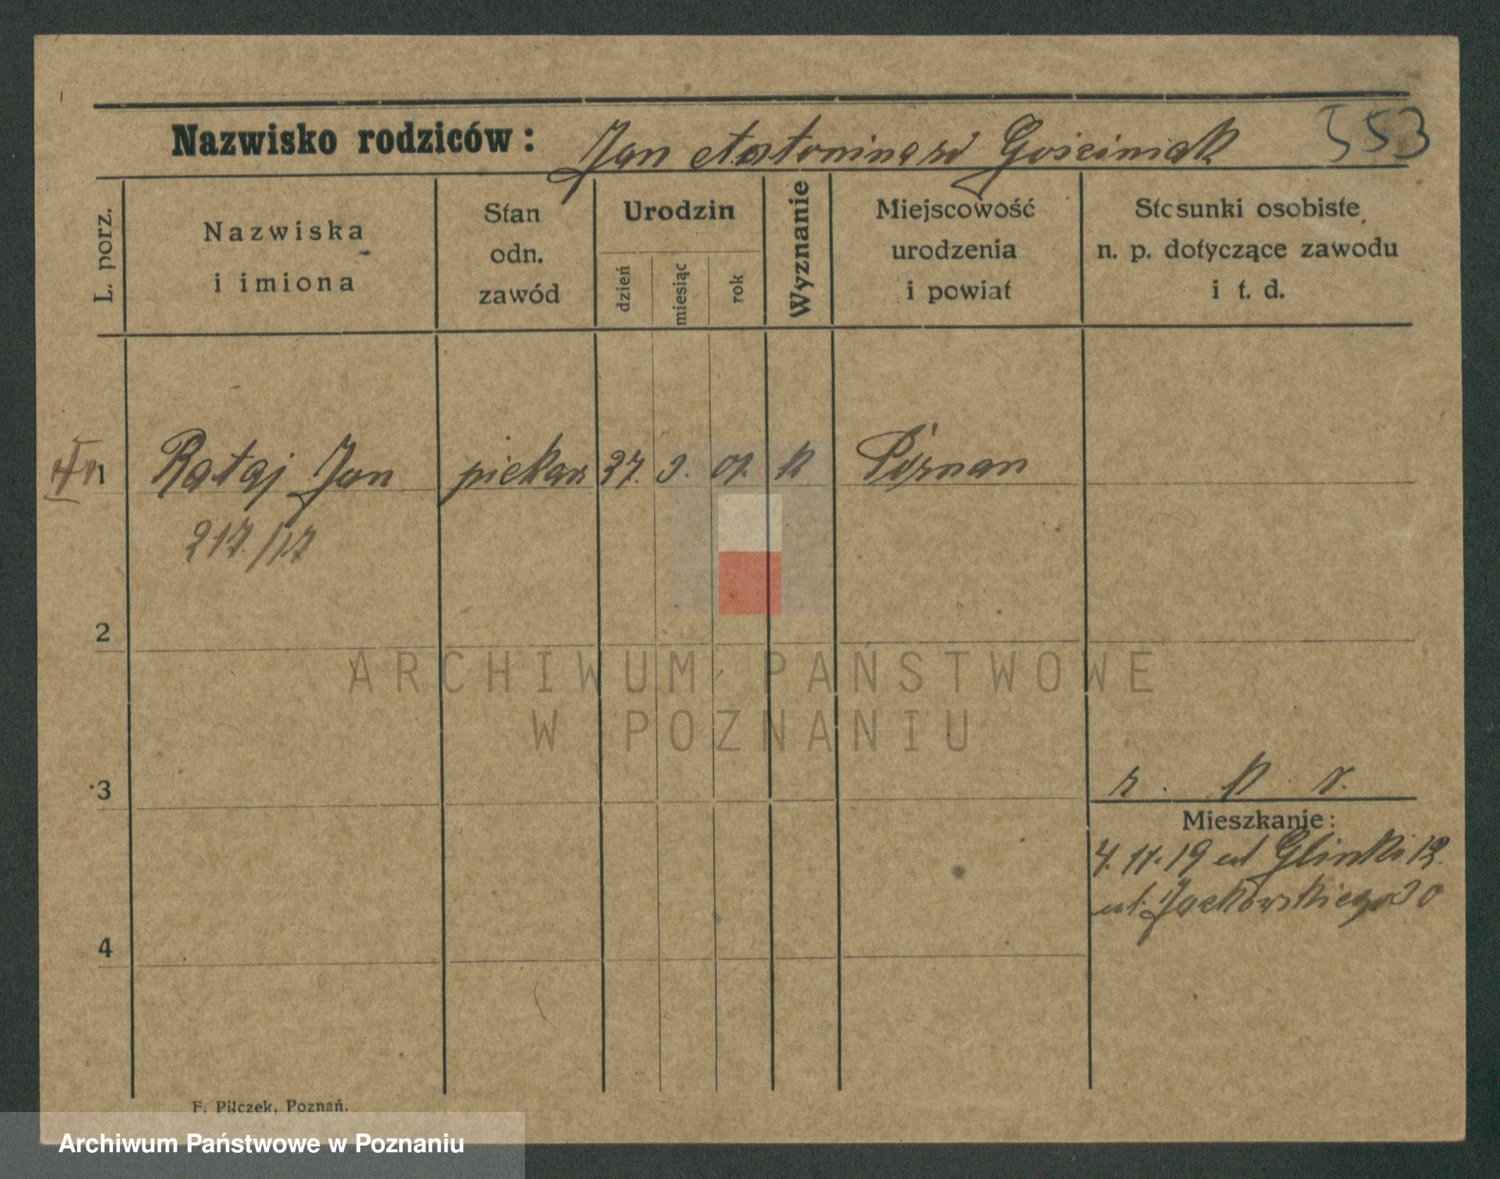 Nazwisko rodziców: Jan Antonina zd Gościniak 353
L. porz.
Nazwiska
i imiona
Stan
odn.
zawód
Urodzin
dzień
miesiąc
rok
Wyznanie
Miejscowość
urodzenia
i powiat
Stosunki osobiste
n. p. dotyczące zawodu
i t. d.
1 Rataj Jan piekarz 27. 9. 07. k Poznan
217/17
2
ARCHIWUM PAŃSTWOWE
W POZNANIU
r. k. r.
3
Mieszkanie:
4. 11. 19 ul Glinki 12.
ul. Jackowskiego 30
4
F. Pilczek, Poznań.
Archiwum Państwowe w Poznaniu